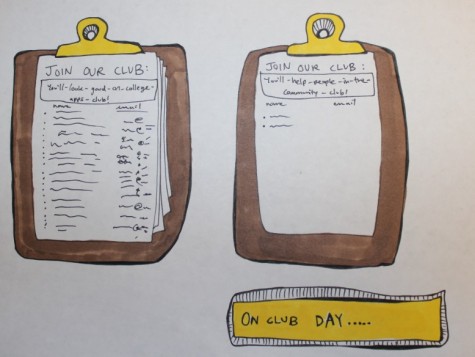 JOIN OUR CLUB:
You'll-look-good-on-college-
apps-club!
name email
JOIN OUR CLUB:
You'll-help-people-in-the-
community-club!
name email
ON CLUB DAY.....